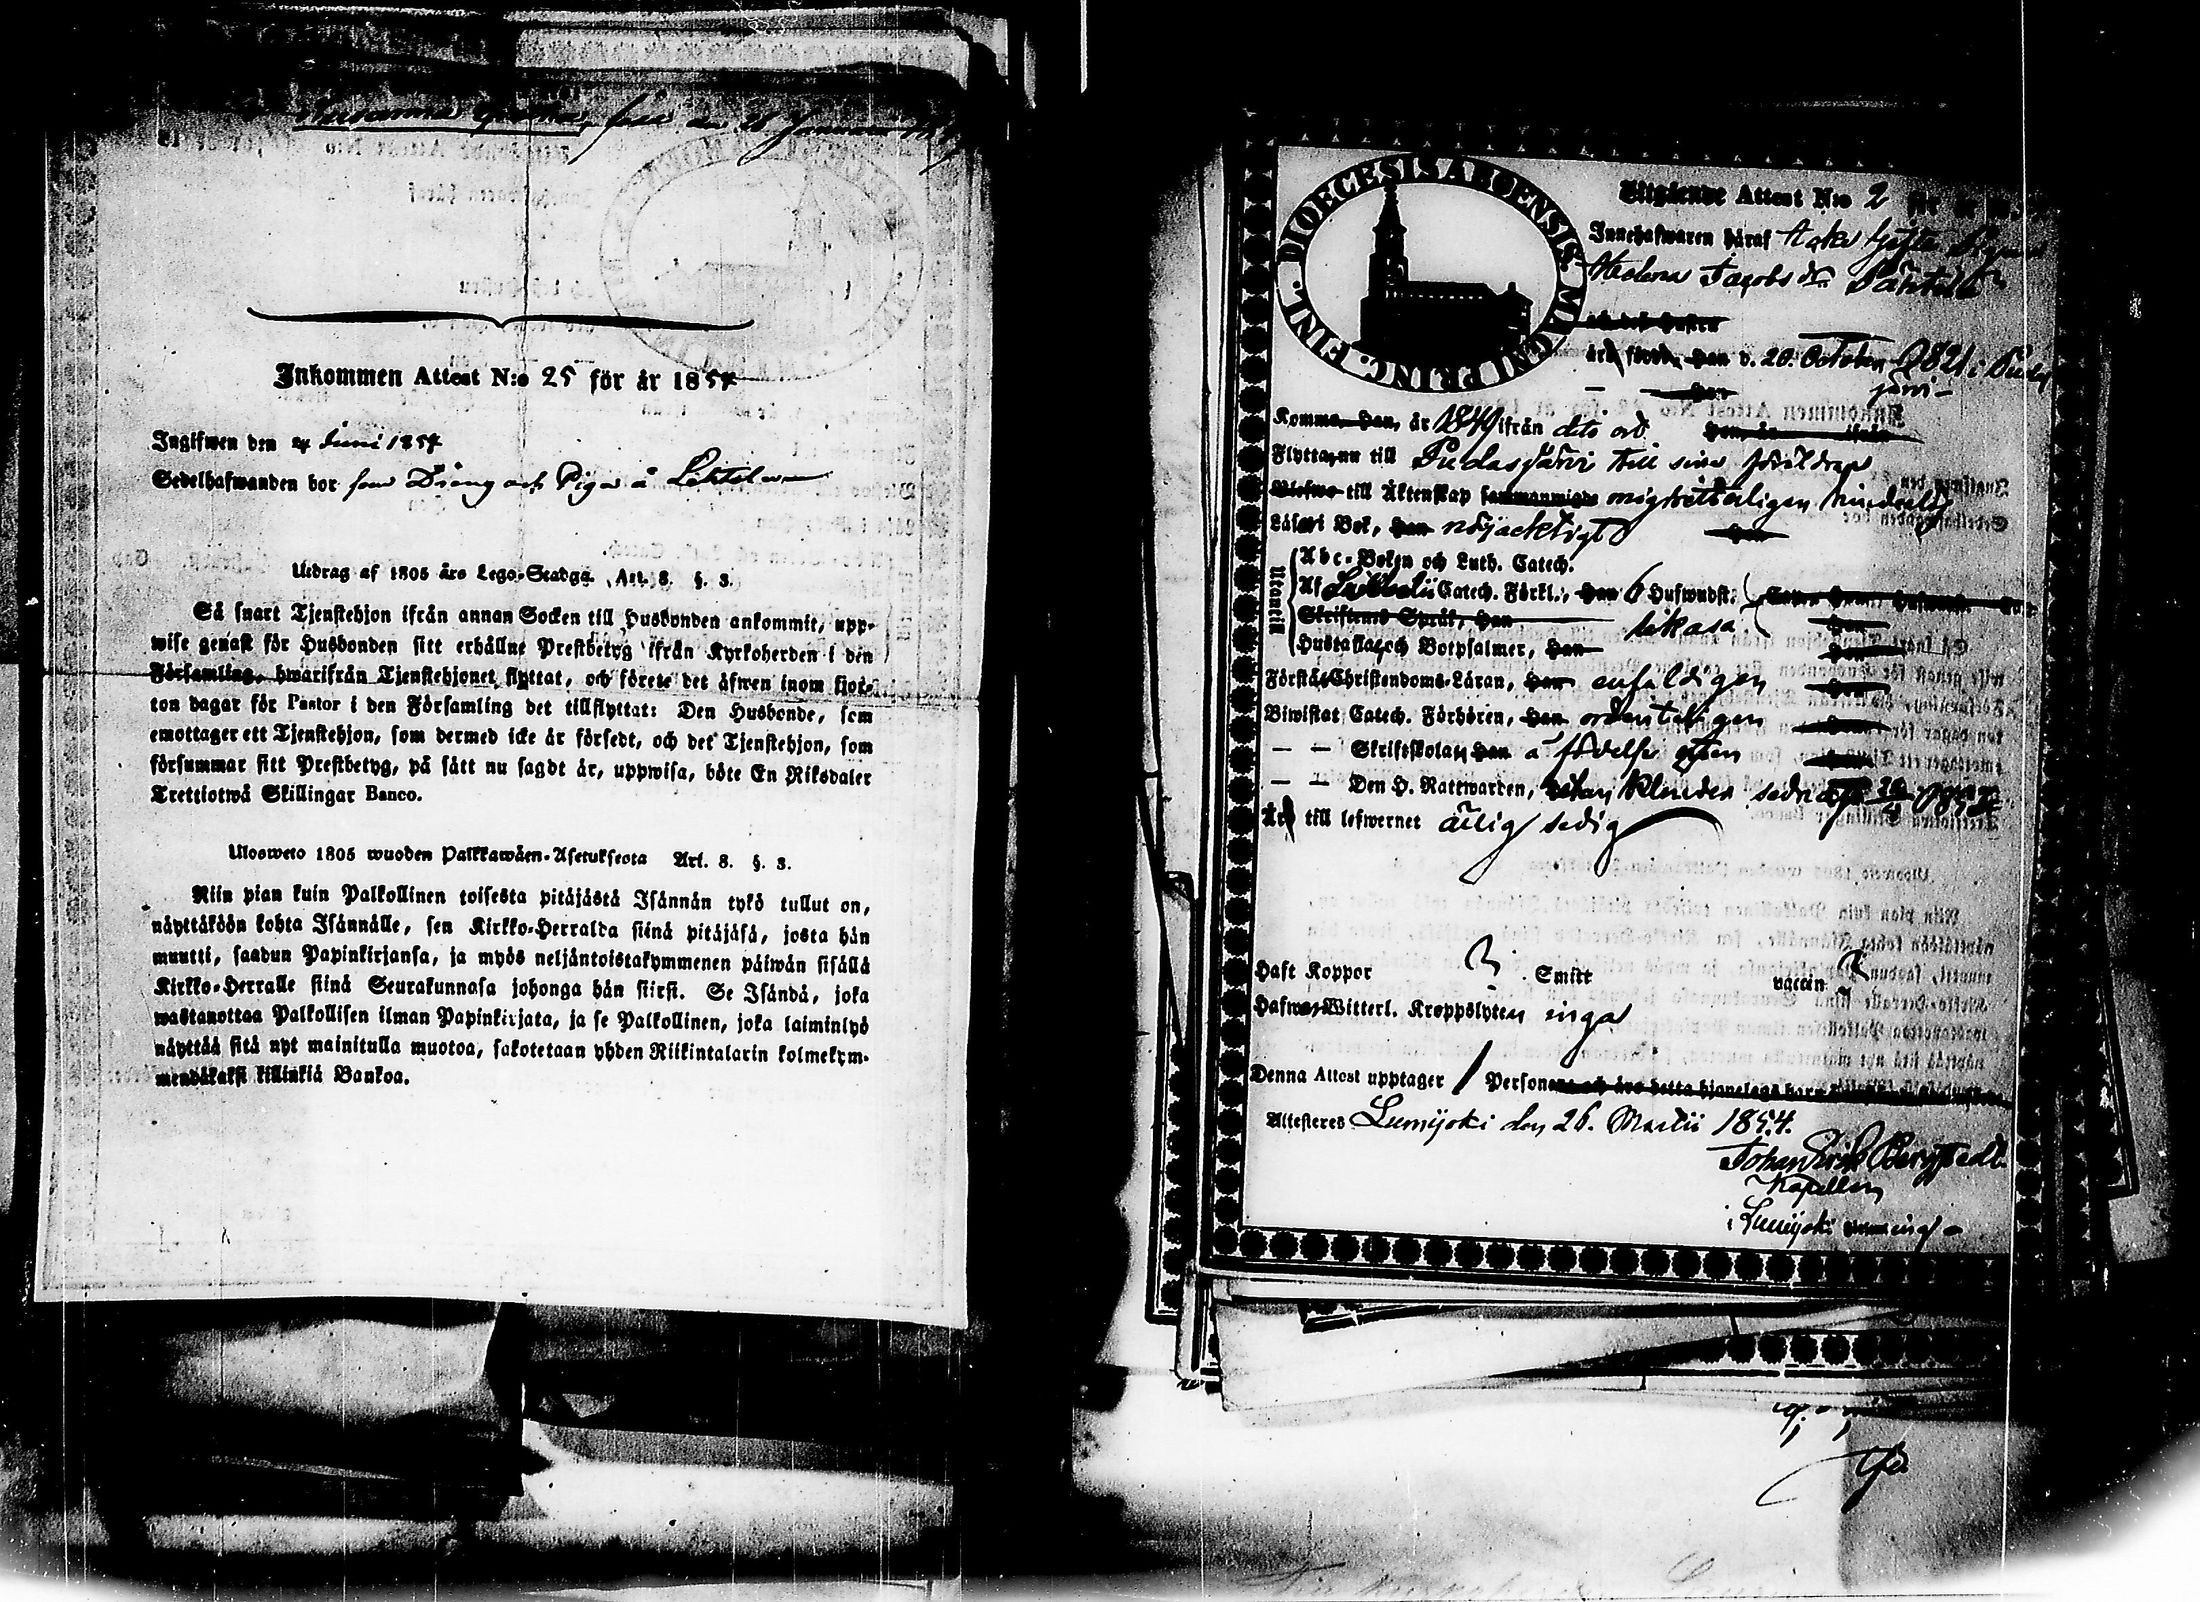 Inkommen Attest N:o 25 för år 1854
Ingifwen den 4 Juni 1854
Sedelhafwanden bor som Dräng och Piga å
Utdrag af 1805 års Lego-Stadga. Art. 8. §. 3.
Så snart Tjenstehjon ifrån annan Socken till Husbonden ankommit, upp-
wise genast för Husbonden sitt erhållne Prestbetyg ifrån Kyrkoherden i den
Församling, hwarifrån Tjenstehjonet flyttat, och förete det äfwen inom fjor-
ton dagar för Pastor i den Församling det tillflyttat: Den Husbonde, som
emottager ett Tjenstehjon, som dermed icke är försedt, och det Tjenstehjon, som
försummar sitt Prestbetyg, på sätt nu sagdt är, uppwisa, böte En Riksdaler
Trettiotwå Skillingar Banco.
Ulosweto 1805 wuoden Palkkawäen-Asetuksesta Art. 8. §. 3.
Niin pian kuin Palkollinen toisesta pitäjästä Isännän tykö tullut on,
näyttäköön kohta Isännälle, sen Kirkko-Herralda siinä pitäjäsä, josta hän
muutti, saadun Papinkirjansa, ja myös neljäntoistakymmenen päiwän sisällä
Kirkko-Herralle siinä Seurakunnasa johonga hän siirsi. Se Isändä, joka
wastanottaa Palkollisen ilman Papinkirjata, ja se Palkollinen, joka laiminlyö
näyttää sitä nyt mainitulla muotoa, sakotetaan yhden Riikintalarin kolmekym-
mendäkaksi killinkiä Bankoa.
DIOECESIS ABOENSIS. MAGNI PRINC. FINL.
Utgående Attest N:o 2 för år
Innehafwaren häraf
Helena Jacobs dr
och dess hustru
äro född, han d. 20. October 1821 i Pudas
järvi
hon
Komma, han, år 1849 ifrån dito ord hon, år ifrån
Flyttar, nu till Pudasjärvi till sina föräldrar
Blefwo till Äktenskap sammanwigde
Läser i Bok, han nöjacktigt hon
Utantill
Abc-Boken och Luth. Catech.
Af Catech. Förkl., han 6 Hufwudst.
Skriftenes Språk, han likasa hon
Hustaflan, och Botpsalmer, han hon
Förstår Christendoms-Läran, han enfaldigen hon
Biwistat Catech. Förhören, han ordenteligen hon
— — Skriftskolan, han å födelse orten
— — Den H. Nattwarden,
Är till lefwernet ärlig sedig
Haft Koppor Smitt vaccin
Hafwer Witterl. Kroppslyten inga
Denna Attest upptager 1 Personer
Attesteras Lumijoki den 26. Martii 1854.
Johan Erik Bergstedt
Kapellan
i Lumijoki